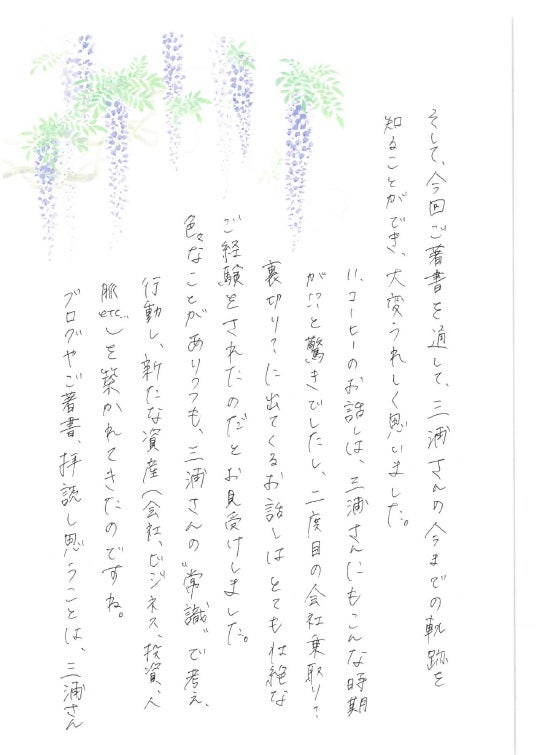 そして、今回ご著書を通して、三浦さんの今までの軌跡を
知ることができ、大変うれしく思いました。
コーヒーのお話しは、三浦さんにもこんな時期
が!?と驚きでしたし、二度目の会社乗取り?
裏切り?に出てくるお話しはとても壮絶な
ご経験をされたのだとお見受けしました。
色々なことがありつつも、三浦さんの〝常識〟で考え、
行動し、新たな資産(会社、ビジネス、投資、人
脈etc…)を築かれてきたのですね。
ブログやご著書、拝読し思うことは、三浦さん